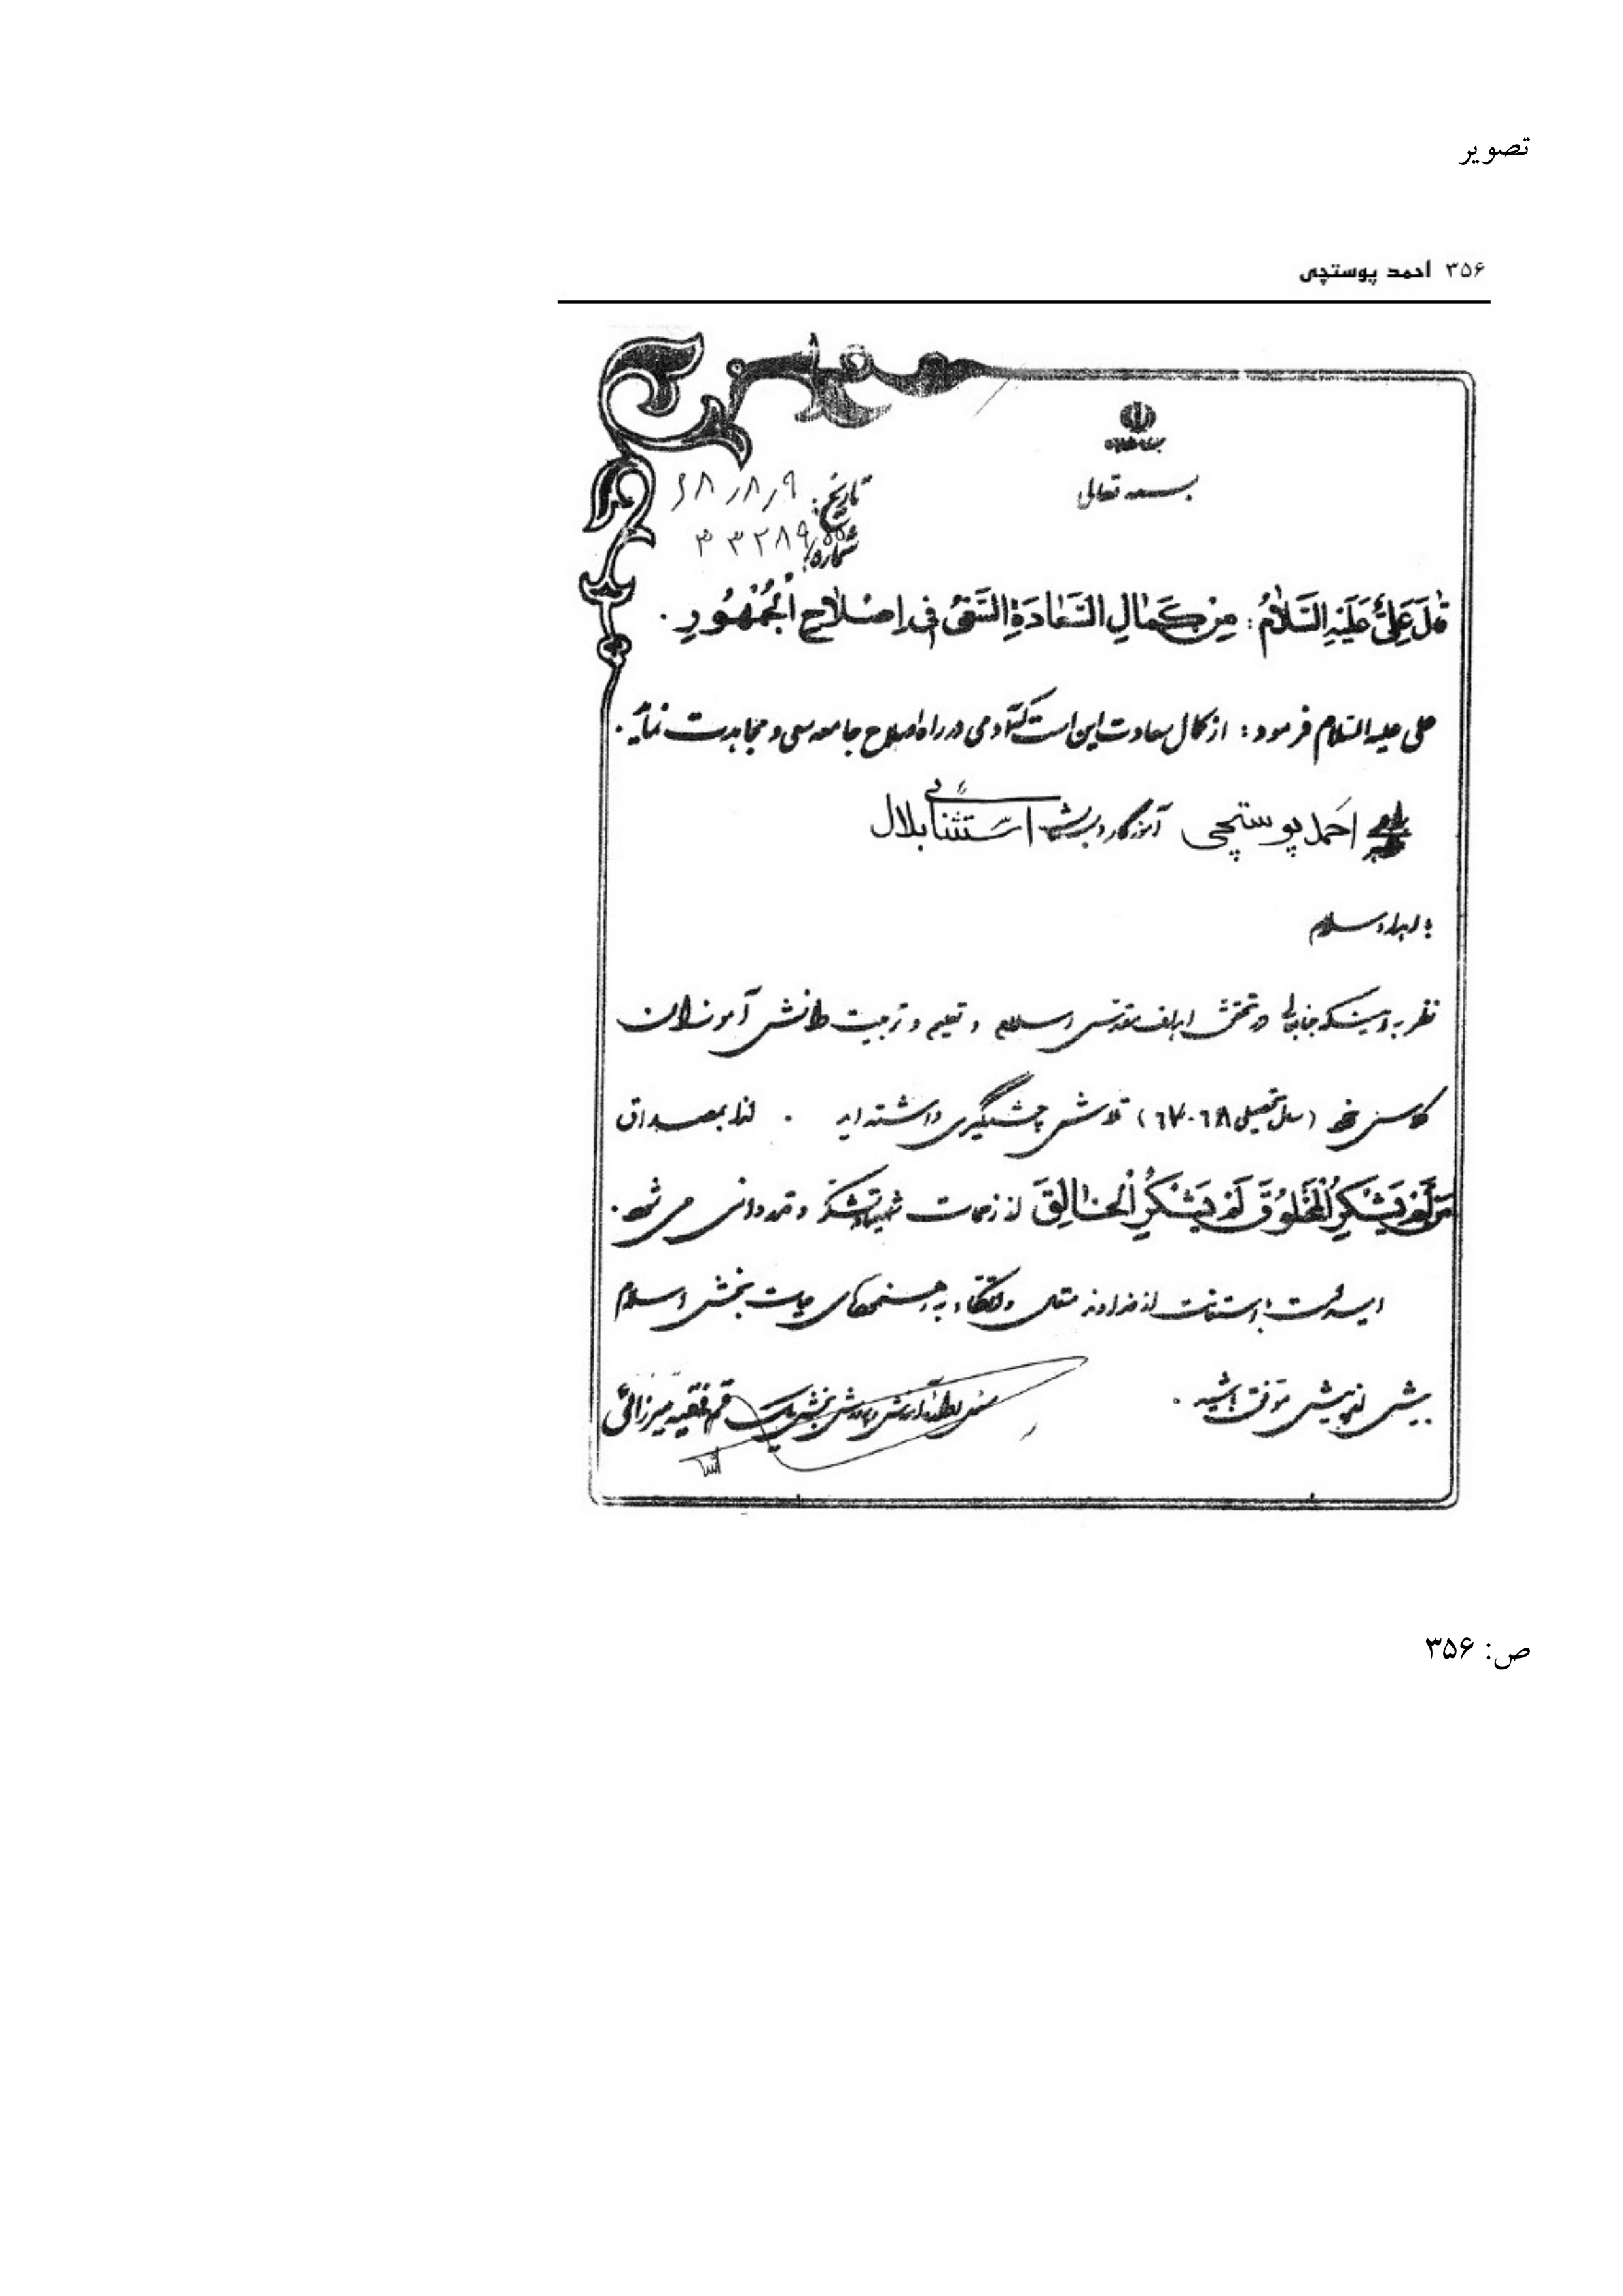 تصویر
۳۵۶ احمد پوستچی
بسمه تعالی
تاریخ: ۶۸/۸/۹
شماره: ۳۳۲۸۹/۵۵
قٰالَ عَلِیٌّ عَلَیْهِ السَّلاٰمُ: مِنْ کَمٰالِ السَّعٰادَةِ السَّعْیُ فی اِصْلاٰحِ الْجُمْهُورِ.
علی علیه السلام فرمود: از کمال سعادت این است که آدمی در راه اصلاح جامعه سعی و مجاهدت نماید.
احمد پوستچی آموزگار دبستان استثنائی بلال
با اهداء سلام
نظر به اینکه جنابعالی در تحقق اهداف مقدس اسلام و تعلیم و تربیت دانش آموزان
کلاس خود (سال تحصیلی ۶۸-۶۷) تلاش چشمگیری داشته اید. لذا بمصداق
مَنْ لَمْ یَشْکُرِ الْمَخْلُوقَ لَمْ یَشْکُرِ الْخٰالِقَ از زحمات شما تشکر و قدردانی می شود.
امید است با استعانت از خداوند متعال و اتکاء به رهنمودهای حیات بخش اسلام
بیش از پیش موفق باشید.
مسئول اداره آموزش و پرورش بخش یک قم فقیه میرزائی
ص: ۳۵۶